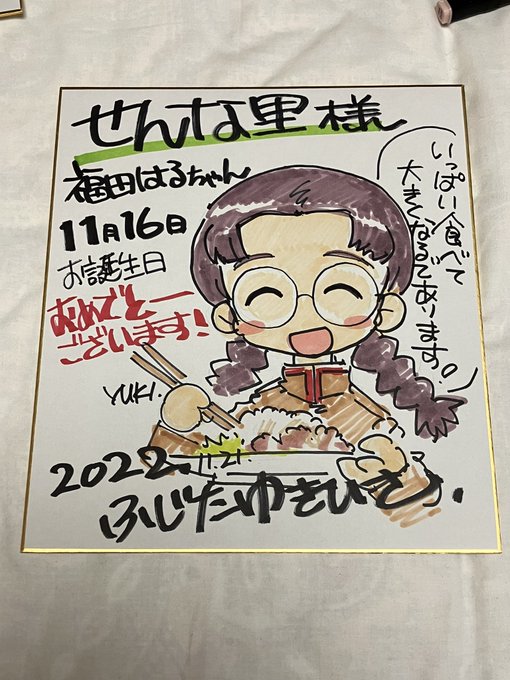 せんな里様
福田はるちゃん
11月16日
お誕生日
おめでとー
ございます!
いっぱい食べて
大きくなるであります!
YUKI.
2022.11.21.
ふじたゆきひさ.